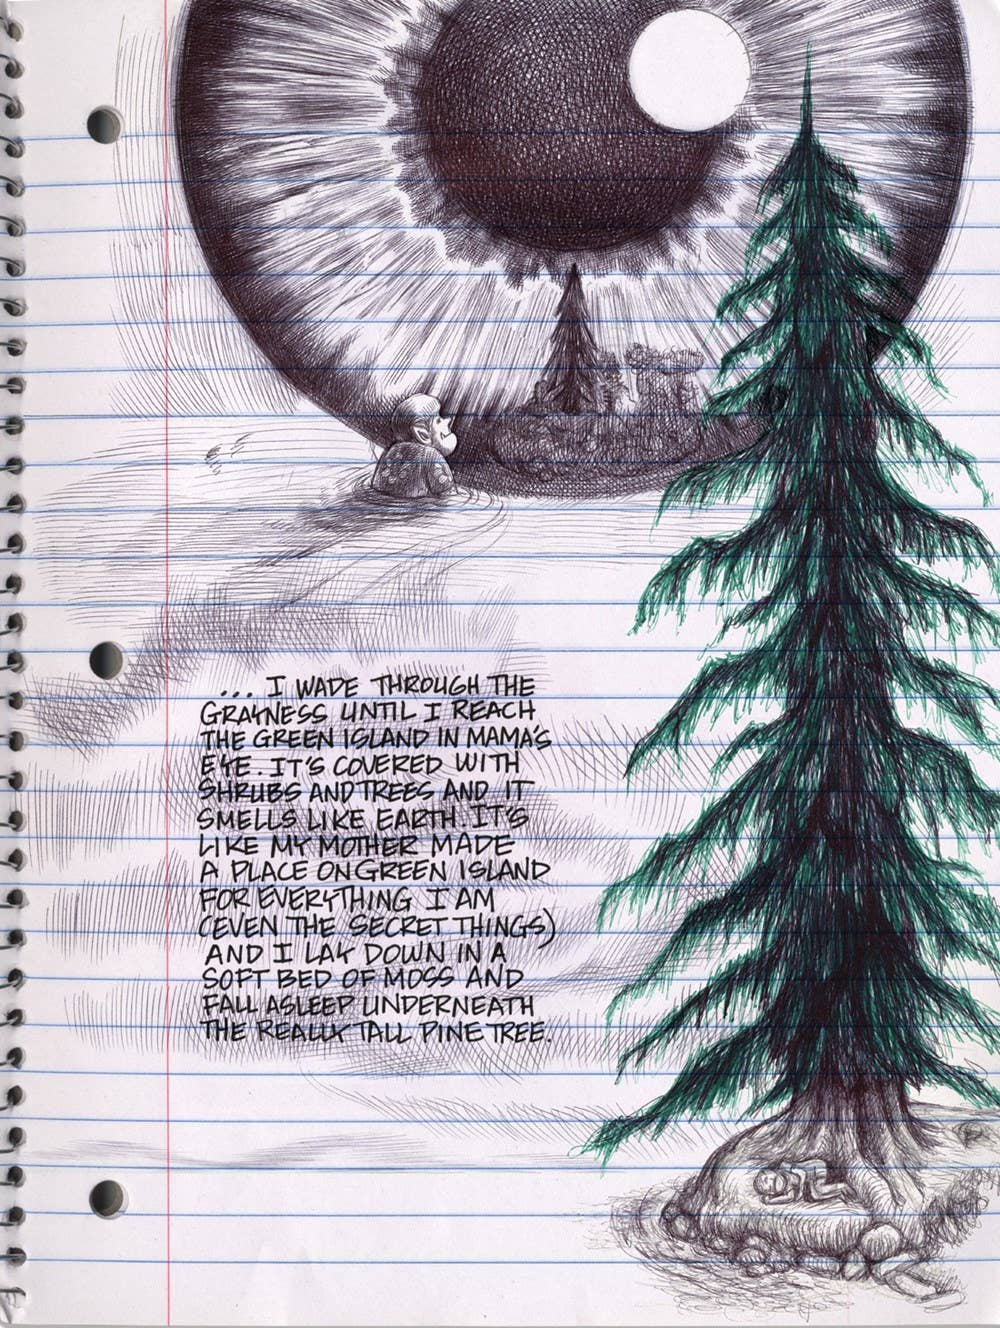 ... I WADE THROUGH THE
GRAYNESS UNTIL I REACH
THE GREEN ISLAND IN MAMA'S
EYE. IT'S COVERED WITH
SHRUBS AND TREES AND IT
SMELLS LIKE EARTH. IT'S
LIKE MY MOTHER MADE
A PLACE ON GREEN ISLAND
FOR EVERYTHING I AM
(EVEN THE SECRET THINGS)
AND I LAY DOWN IN A
SOFT BED OF MOSS AND
FALL ASLEEP UNDERNEATH
THE REALLY TALL PINE TREE.